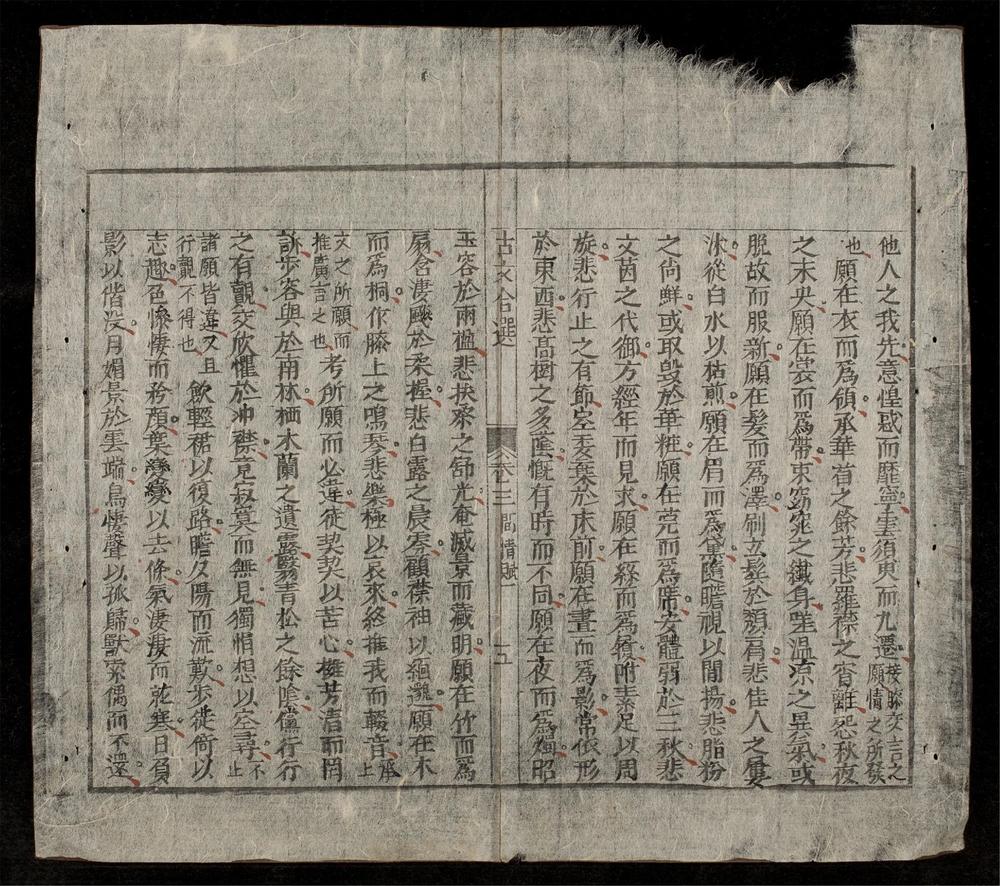 他人之我先意惶惑而靡寧䰟須臾而九遷接膝交言之
也願在衣而爲領承華首之餘芳悲羅襟之宵離怨秋夜願情之所發
之未央願在裳而爲帶束窈窕之纖身嗟溫凉之異氣或
脫故而服新願在髮而爲澤刷玄鬢於頹肩悲佳人之屢
沐從白水以枯煎願在眉而爲黛隨瞻視以閒揚悲脂粉
之尚鮮或取毀於華粧願在莞而爲席安弱體於三秋悲
文茵之代御方經年而見求願在絲而爲履附素足以周
旋悲行止之有節空委棄於床前願在晝而爲影常依形
於東西悲高樹之多蔭慨有時而不同願在夜而爲燭昭
古文合選 卷三 閒情賦 十五
玉容於兩楹悲扶桑之舒光奄滅景而藏明願在竹而爲
扇含淒飇於柔握悲白露之晨零顧襟袖以緬邈願在木
而爲桐作膝上之鳴琴悲樂極以哀來終推我而輟音上承
文之所願而推廣言之也考所願而必違徒契契以苦心擁芳淸而罔
訴步容與於南林栖木蘭之遺露翳靑松之餘陰儻行行
之有覿交欣懼於冲襟竟寂寞而無見獨悁想以空尋不止
諸願皆違又且行覿不得也斂輕裾以復路瞻夕陽而流歎步徙倚以
志趣色慘悽而矜顏葉燮燮以去條氣淒淒而就寒日負
影以偕沒月媚景於雲端鳥悽聲以孤歸獸索偶而不還